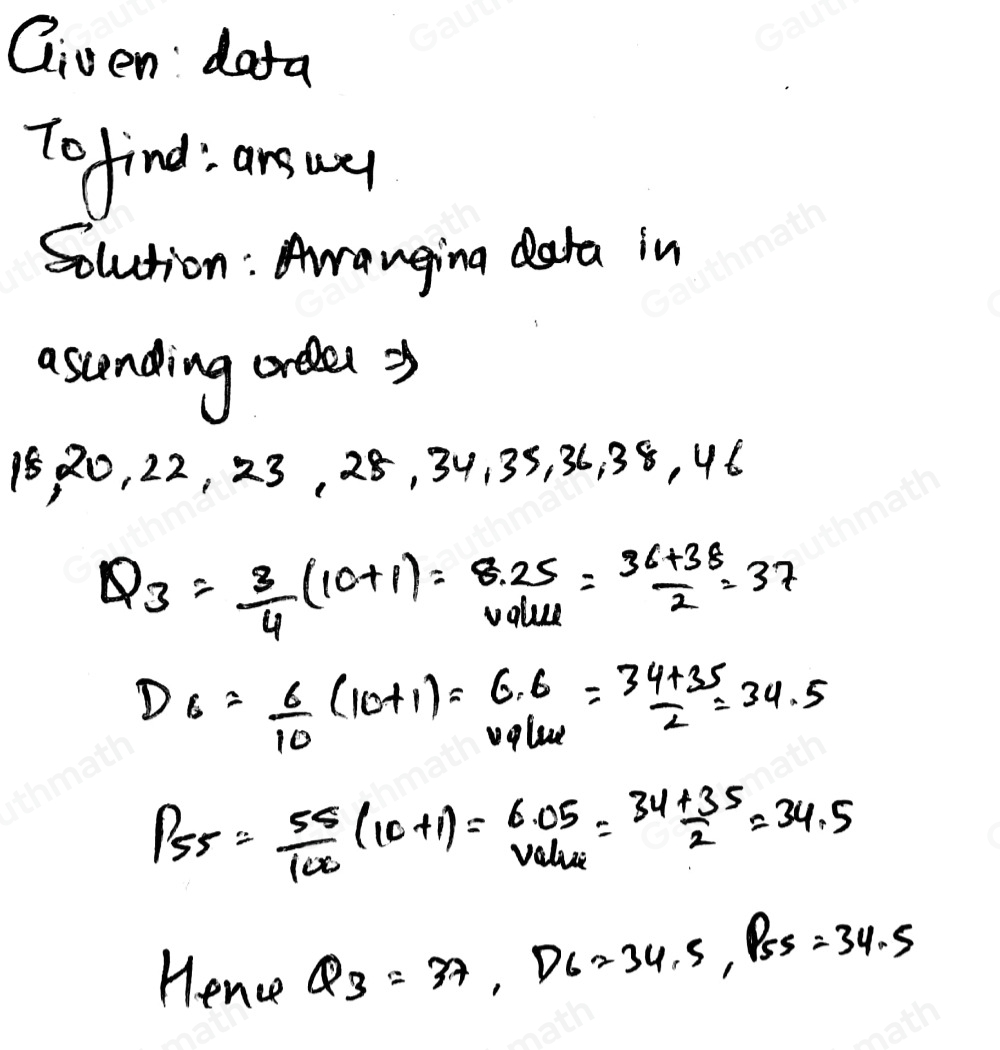 Given: data
To find: answer
Solution: Arranging data in
ascending order ⇒
18, 20, 22, 23, 28, 34, 35, 36, 38, 46
Q3 = 3/4 (10+1) = 8.25 value = 36+38/2 = 37
D6 = 6/10 (10+1) = 6.6 value = 34+35/2 = 34.5
P55 = 55/100 (10+1) = 6.05 value = 34+35/2 = 34.5
Hence Q3 = 37, D6 = 34.5, P55 = 34.5